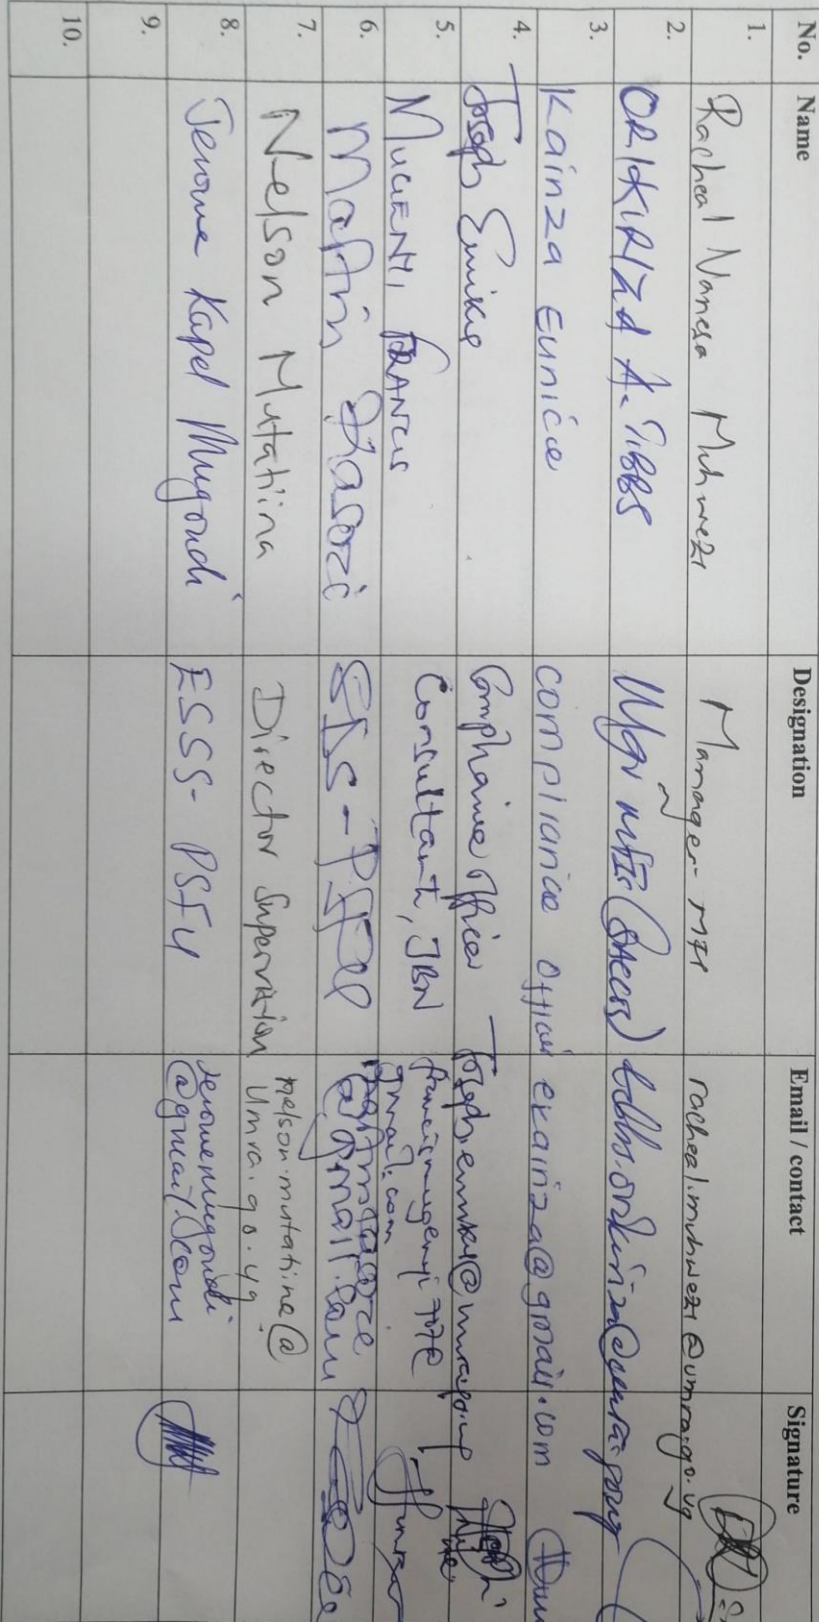 No. Name Designation Email / contact Signature
1. Racheal Namesa Muhwezi Manager - MFI racheal.muhwezi@umra.go.ug
2. ORIKIRIZA A. TIBBS Mgr
3. Kainza Eunice compliance officer ekainza@gmail.com
4. Joseph Emikie Compliance Officer
5. MUGENYI FRANCIS Consultant, JBN francismugenyi707@
gmail.com
6. Martin Kasozi
@gmail.com
7. Nelson Mutatiina Director Supervision nelson.mutatiine@
Umra.go.ug
8. Jerome Kapel Mugondi ESSS- PSFU jeromemugondi
@gmail.com
9.
10.